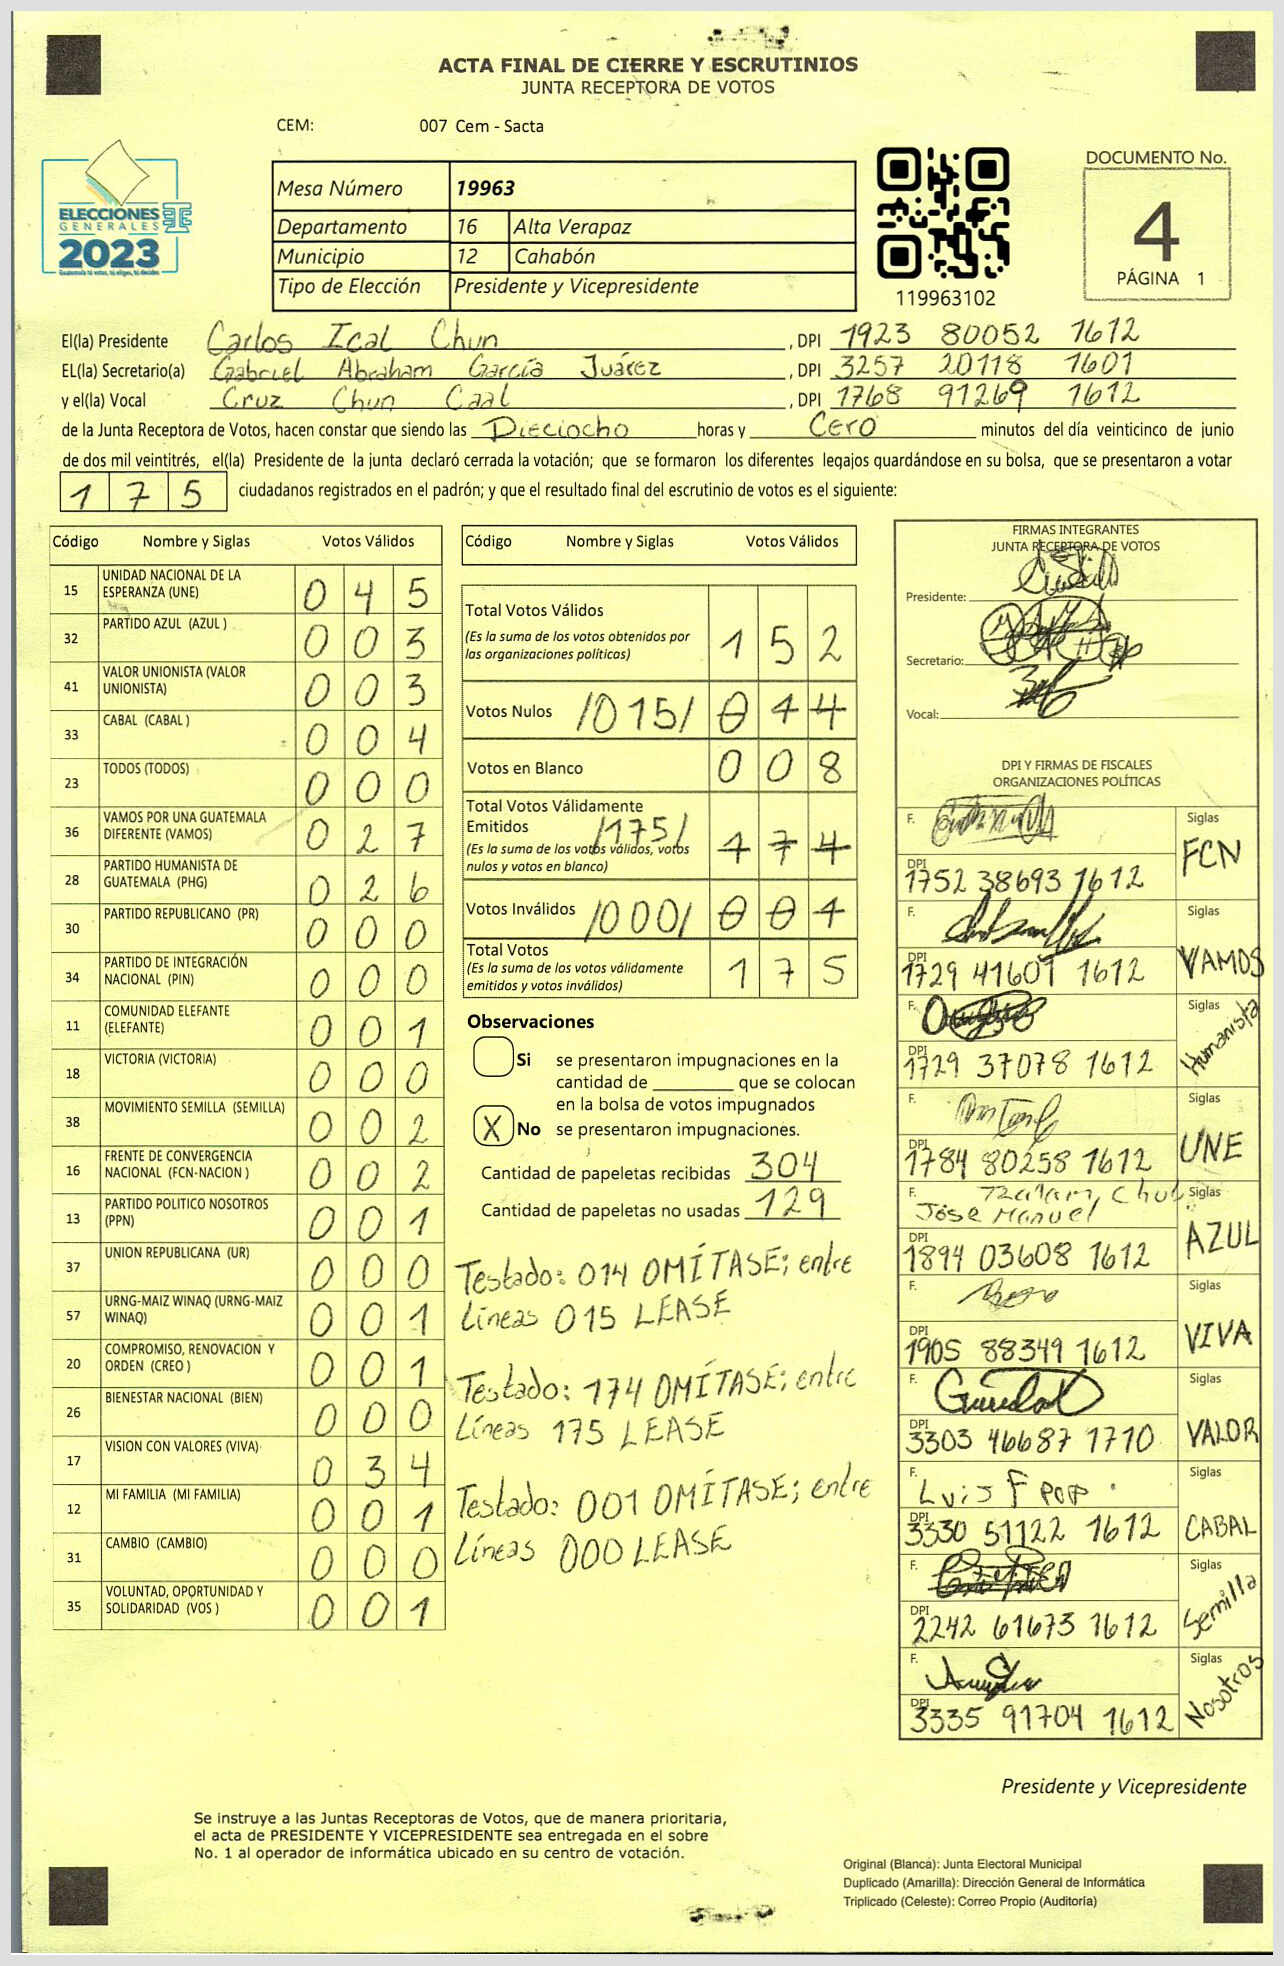 ACTA FINAL DE CIERRE Y ESCRUTINIOS
JUNTA RECEPTORA DE VOTOS
CEM: 007 Cem - Sacta
ELECCIONES
GENERALES
2023
Guatemala tú votas, tú eliges, tú decides
Mesa Número 19963
Departamento 16 Alta Verapaz
Municipio 12 Cahabón
Tipo de Elección Presidente y Vicepresidente
119963102
DOCUMENTO No.
4
PÁGINA 1
El(la) Presidente Carlos Ical Chun , DPI 1923 80052 1612
EL(la) Secretario(a) Gabriel Abraham García Juárez , DPI 3257 20118 1601
y el(la) Vocal Cruz Chun Caal , DPI 1768 91269 1612
de la Junta Receptora de Votos, hacen constar que siendo las Dieciocho horas y Cero minutos del día veinticinco de junio
de dos mil veintitrés, el(la) Presidente de la junta declaró cerrada la votación; que se formaron los diferentes legajos quardándose en su bolsa, que se presentaron a votar
1 7 5 ciudadanos registrados en el padrón; y que el resultado final del escrutinio de votos es el siguiente:
Código Nombre y Siglas Votos Válidos
15 UNIDAD NACIONAL DE LA ESPERANZA (UNE) 0 4 5
32 PARTIDO AZUL (AZUL ) 0 0 3
41 VALOR UNIONISTA (VALOR UNIONISTA) 0 0 3
33 CABAL (CABAL ) 0 0 4
23 TODOS (TODOS) 0 0 0
36 VAMOS POR UNA GUATEMALA DIFERENTE (VAMOS) 0 2 7
28 PARTIDO HUMANISTA DE GUATEMALA (PHG) 0 2 6
30 PARTIDO REPUBLICANO (PR) 0 0 0
34 PARTIDO DE INTEGRACIÓN NACIONAL (PIN) 0 0 0
11 COMUNIDAD ELEFANTE (ELEFANTE) 0 0 1
18 VICTORIA (VICTORIA) 0 0 0
38 MOVIMIENTO SEMILLA (SEMILLA) 0 0 2
16 FRENTE DE CONVERGENCIA NACIONAL (FCN-NACION ) 0 0 2
13 PARTIDO POLITICO NOSOTROS (PPN) 0 0 1
37 UNION REPUBLICANA (UR) 0 0 0
57 URNG-MAIZ WINAQ (URNG-MAIZ WINAQ) 0 0 1
20 COMPROMISO, RENOVACION Y ORDEN (CREO ) 0 0 1
26 BIENESTAR NACIONAL (BIEN) 0 0 0
17 VISION CON VALORES (VIVA) 0 3 4
12 MI FAMILIA (MI FAMILIA) 0 0 1
31 CAMBIO (CAMBIO) 0 0 0
35 VOLUNTAD, OPORTUNIDAD Y SOLIDARIDAD (VOS ) 0 0 1
Código Nombre y Siglas Votos Válidos
Total Votos Válidos 1 5 2
(Es la suma de los votos obtenidos por
las organizaciones políticas)
Votos Nulos /015/ 0 1 4
Votos en Blanco 0 0 8
Total Votos Válidamente
Emitidos /175/ 1 7 4
(Es la suma de los votos válidos, votos
nulos y votos en blanco)
Votos Inválidos /000/ 0 0 1
Total Votos 1 7 5
(Es la suma de los votos válidamente
emitidos y votos inválidos)
Observaciones
Si se presentaron impugnaciones en la
cantidad de ________ que se colocan
en la bolsa de votos impugnados
X No se presentaron impugnaciones.
Cantidad de papeletas recibidas 304
Cantidad de papeletas no usadas 129
Testado: 014 OMÍTASE; entre
Líneas 015 LEASE
Testado: 174 OMÍTASE; entre
Líneas 175 LEASE
Testado: 001 OMÍTASE; entre
Líneas 000 LEASE
FIRMAS INTEGRANTES
JUNTA RECEPTORA DE VOTOS
Presidente:
Secretario:
Vocal:
DPI Y FIRMAS DE FISCALES
ORGANIZACIONES POLÍTICAS
F. Siglas
DPI 1752 38693 1612 FCN
F. Siglas
DPI 1729 41601 1612 VAMOS
F. Siglas
DPI 1729 37078 1612 Humanista
F. Siglas
DPI 1784 80258 1612 UNE
F. Siglas
José Manuel
DPI 1894 03608 1612 AZUL
F. Siglas
DPI 1905 88349 1612 VIVA
F. Siglas
DPI 3303 46687 1710 VALOR
F. Luis F Pop Siglas
DPI 3330 51122 1612 CABAL
F. Siglas
DPI 2242 61673 1612 Semilla
F. Siglas
DPI 3335 91704 1612 Nosotros
Presidente y Vicepresidente
Se instruye a las Juntas Receptoras de Votos, que de manera prioritaria,
el acta de PRESIDENTE Y VICEPRESIDENTE sea entregada en el sobre
No. 1 al operador de informática ubicado en su centro de votación.
Original (Blanca): Junta Electoral Municipal
Duplicado (Amarilla): Dirección General de Informática
Triplicado (Celeste): Correo Propio (Auditoría)